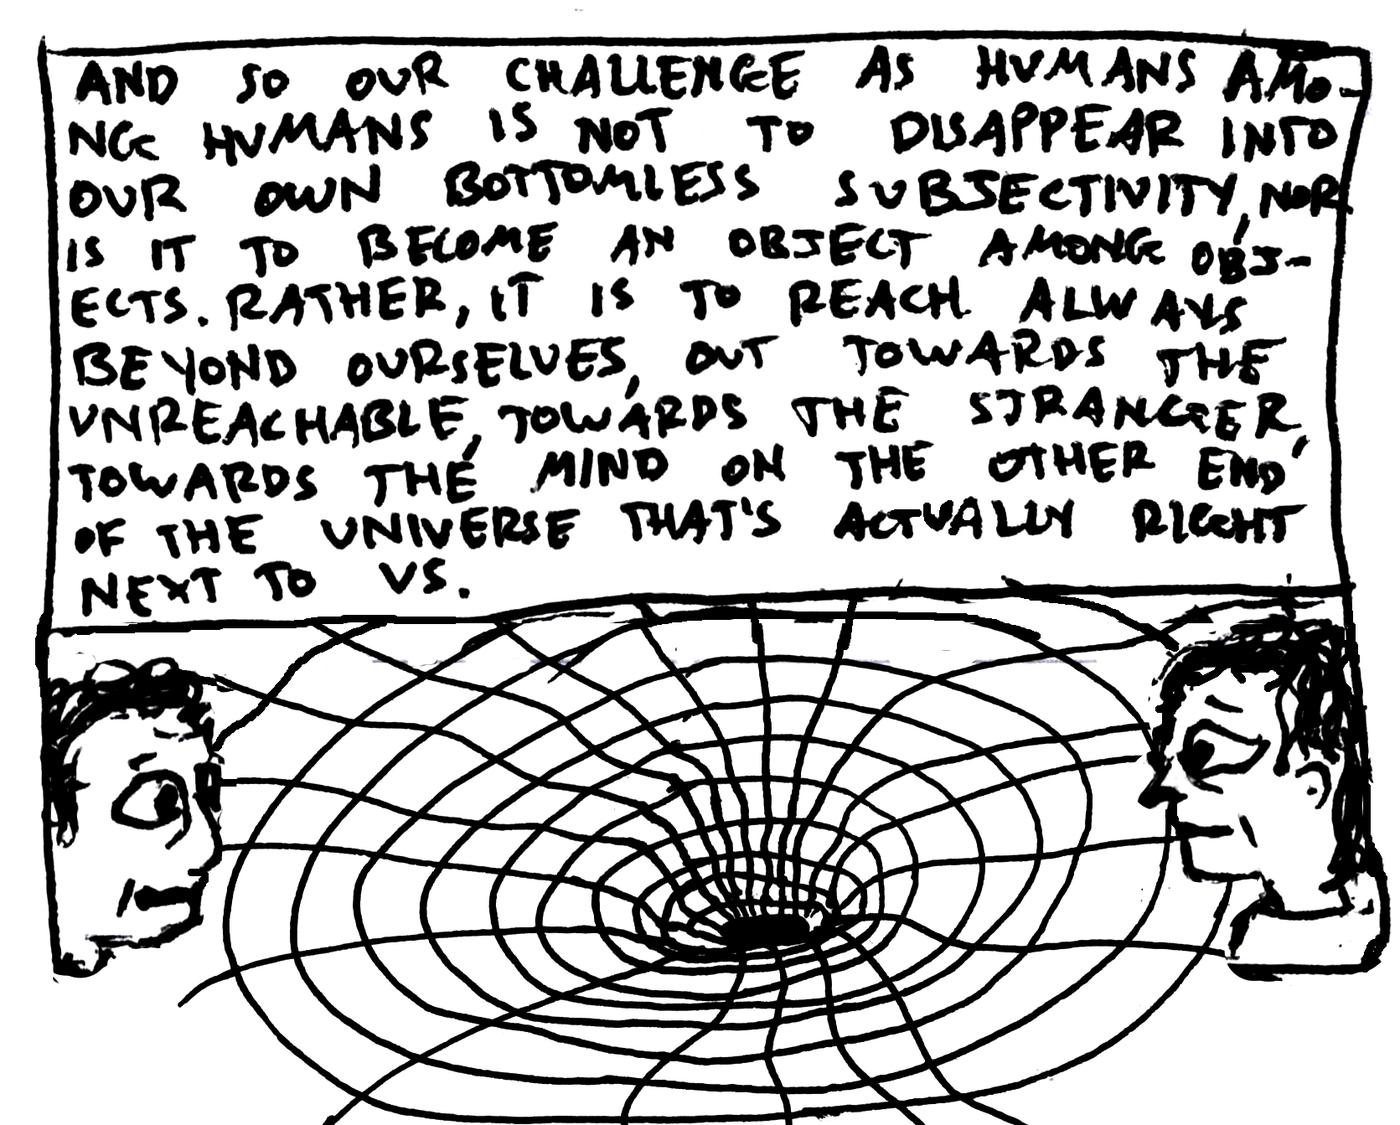 AND SO OUR CHALLENGE AS HUMANS AMO-
NG HUMANS IS NOT TO DISAPPEAR INTO
OUR OWN BOTTOMLESS SUBJECTIVITY, NOR
IS IT TO BECOME AN OBJECT AMONG OBJ-
ECTS. RATHER, IT IS TO REACH ALWAYS
BEYOND OURSELVES, OUT TOWARDS THE
UNREACHABLE, TOWARDS THE STRANGER,
TOWARDS THE MIND ON THE OTHER END
OF THE UNIVERSE THAT'S ACTUALLY RIGHT
NEXT TO US.